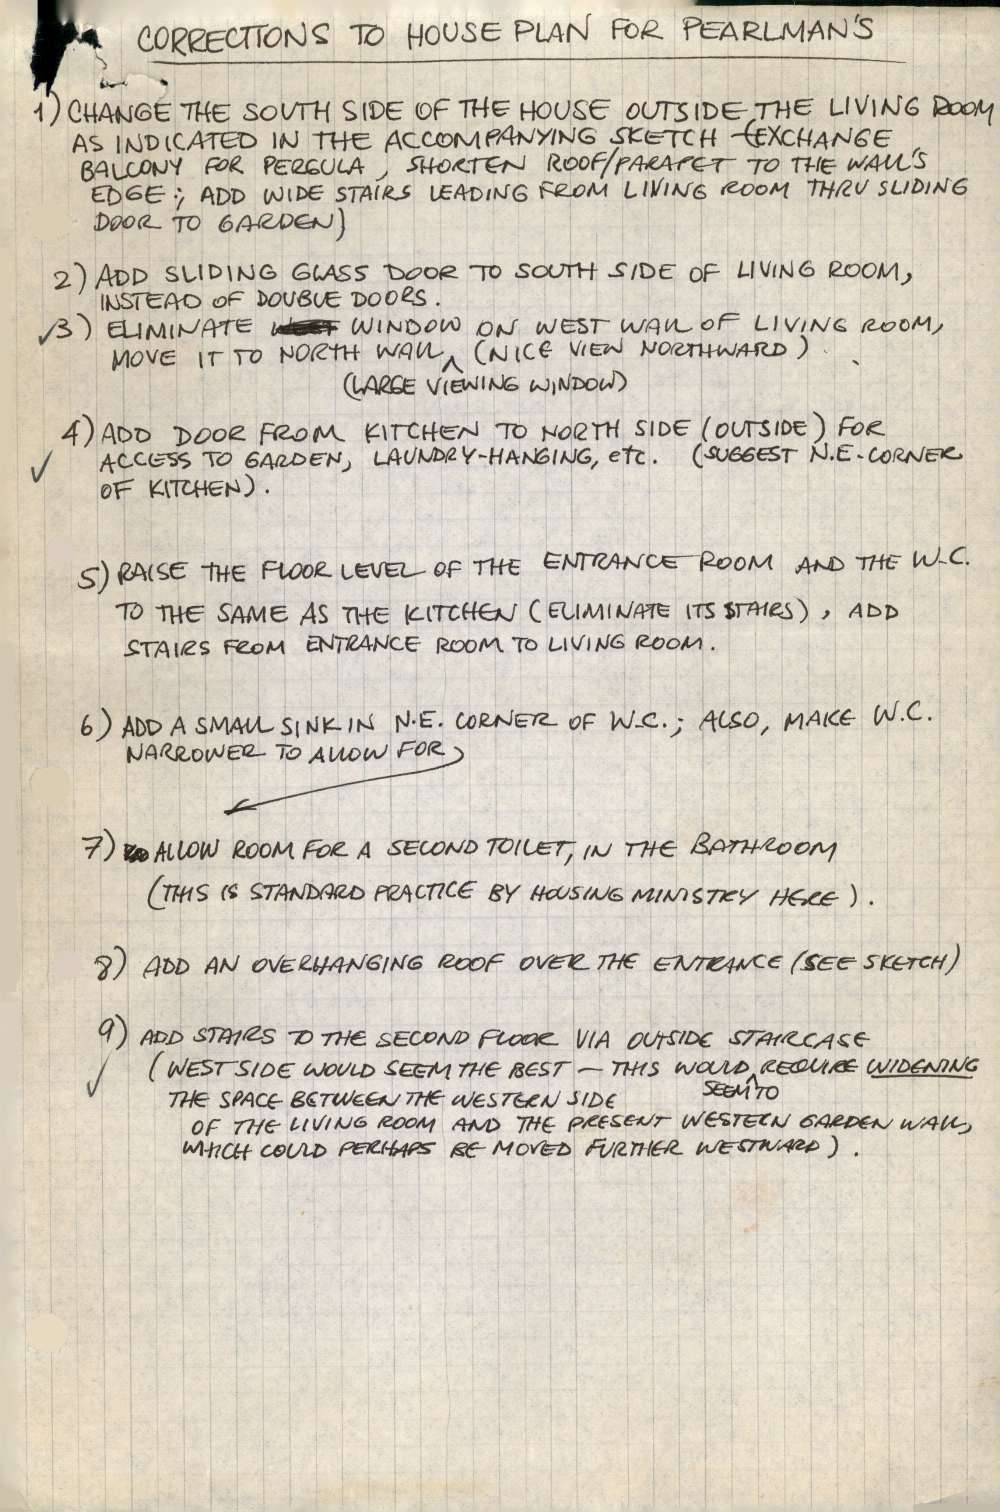 CORRECTIONS TO HOUSE PLAN FOR PEARLMAN'S
1) CHANGE THE SOUTH SIDE OF THE HOUSE OUTSIDE THE LIVING ROOM
AS INDICATED IN THE ACCOMPANYING SKETCH (EXCHANGE
BALCONY FOR PERGULA, SHORTEN ROOF/PARAPET TO THE WALL'S
EDGE; ADD WIDE STAIRS LEADING FROM LIVING ROOM THRU SLIDING
DOOR TO GARDEN)
2) ADD SLIDING GLASS DOOR TO SOUTH SIDE OF LIVING ROOM,
INSTEAD OF DOUBLE DOORS.
✓3) ELIMINATE WINDOW ON WEST WALL OF LIVING ROOM,
MOVE IT TO NORTH WALL ^ (NICE VIEW NORTHWARD).
(LARGE VIEWING WINDOW)
4) ADD DOOR FROM KITCHEN TO NORTH SIDE (OUTSIDE) FOR
✓ ACCESS TO GARDEN, LAUNDRY-HANGING, etc. (SUGGEST N.E-CORNER
OF KITCHEN).
5) RAISE THE FLOOR LEVEL OF THE ENTRANCE ROOM AND THE W.C.
TO THE SAME AS THE KITCHEN (ELIMINATE ITS STAIRS), ADD
STAIRS FROM ENTRANCE ROOM TO LIVING ROOM.
6) ADD A SMALL SINK IN N.E. CORNER OF W.C.; ALSO, MAKE W.C.
NARROWER TO ALLOW FOR
7) ALLOW ROOM FOR A SECOND TOILET, IN THE BATHROOM
(THIS IS STANDARD PRACTICE BY HOUSING MINISTRY HERE).
8) ADD AN OVERHANGING ROOF OVER THE ENTRANCE (SEE SKETCH)
9) ADD STAIRS TO THE SECOND FLOOR VIA OUTSIDE STAIRCASE
✓ (WEST SIDE WOULD SEEM THE BEST — THIS WOULD ^ REQUIRE WIDENING
SEEM TO
THE SPACE BETWEEN THE WESTERN SIDE
OF THE LIVING ROOM AND THE PRESENT WESTERN GARDEN WALL,
WHICH COULD PERHAPS BE MOVED FURTHER WESTWARD).